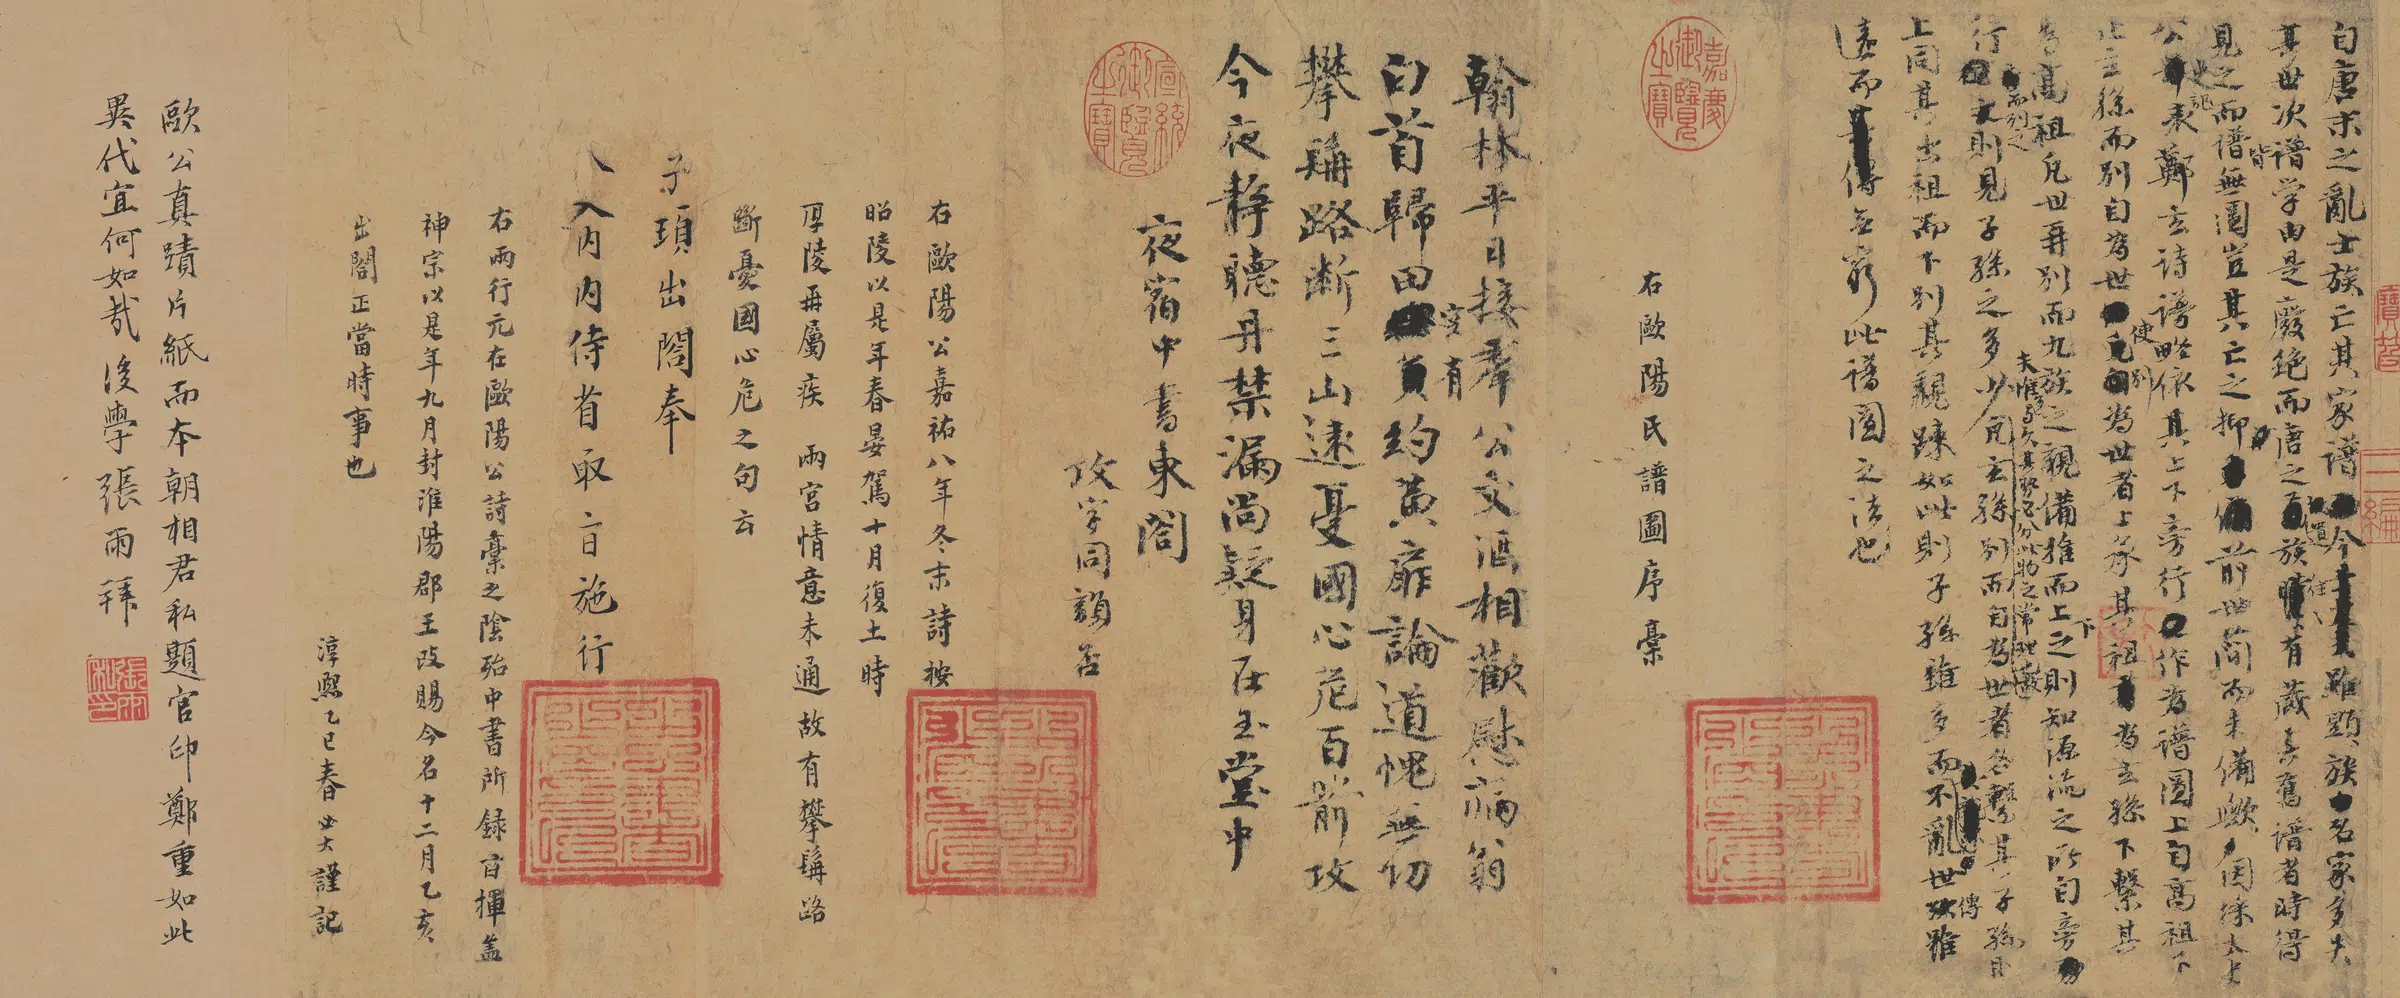 自唐末之亂士族亡其家譜今雖顯族名家多失
其世次譜學由是廢絕而唐之遺族往往有藏其舊譜者時得
見之而譜皆無圖豈其亡之抑前世簡而未備歟因採太史
公史記表鄭玄詩譜略依其上下旁行作為譜圖上自高祖下
止玄孫而別自為世使別為世者上承其祖為玄孫下繫其
孫為高祖凡世再別而九族之親備推而上下之則知源流之所自旁
行而列之則見子孫之多少夫惟多與久其勢必分此物之常理也凡玄孫別而自為世者各繫其子孫則
上同其出祖而下別其親疎如此則子孫雖多而不亂世傳雖
遠而無窮此譜圖之法也
右歐陽氏譜圖序稾
嘉慶御覽之寶
翰林平日接羣公文酒相歡慰病翁
白首歸田空有約黃扉論道愧無功
攀髯路斷三山遠憂國心危百箭攻
今夜靜聽丹禁漏尚疑身在玉堂中
夜宿中書東閣
攻字同韻否
宣統御覽之寶
右歐陽公嘉祐八年冬末詩按
昭陵以是年春晏駕十月復土時
厚陵再屬疾 兩宮情意未通故有攀髯路
斷憂國心危之句云
子頊出閤奉
入入內內侍省取旨施行
右兩行元在歐陽公詩稾之陰殆中書所録旨揮蓋
神宗以是年九月封淮陽郡王改賜今名十二月乙亥
出閤正當時事也
淳熙乙巳春必大謹記
歐公真蹟片紙而本朝相君私題官印鄭重如此
異代宜何如哉後學張雨拜
張雨私印